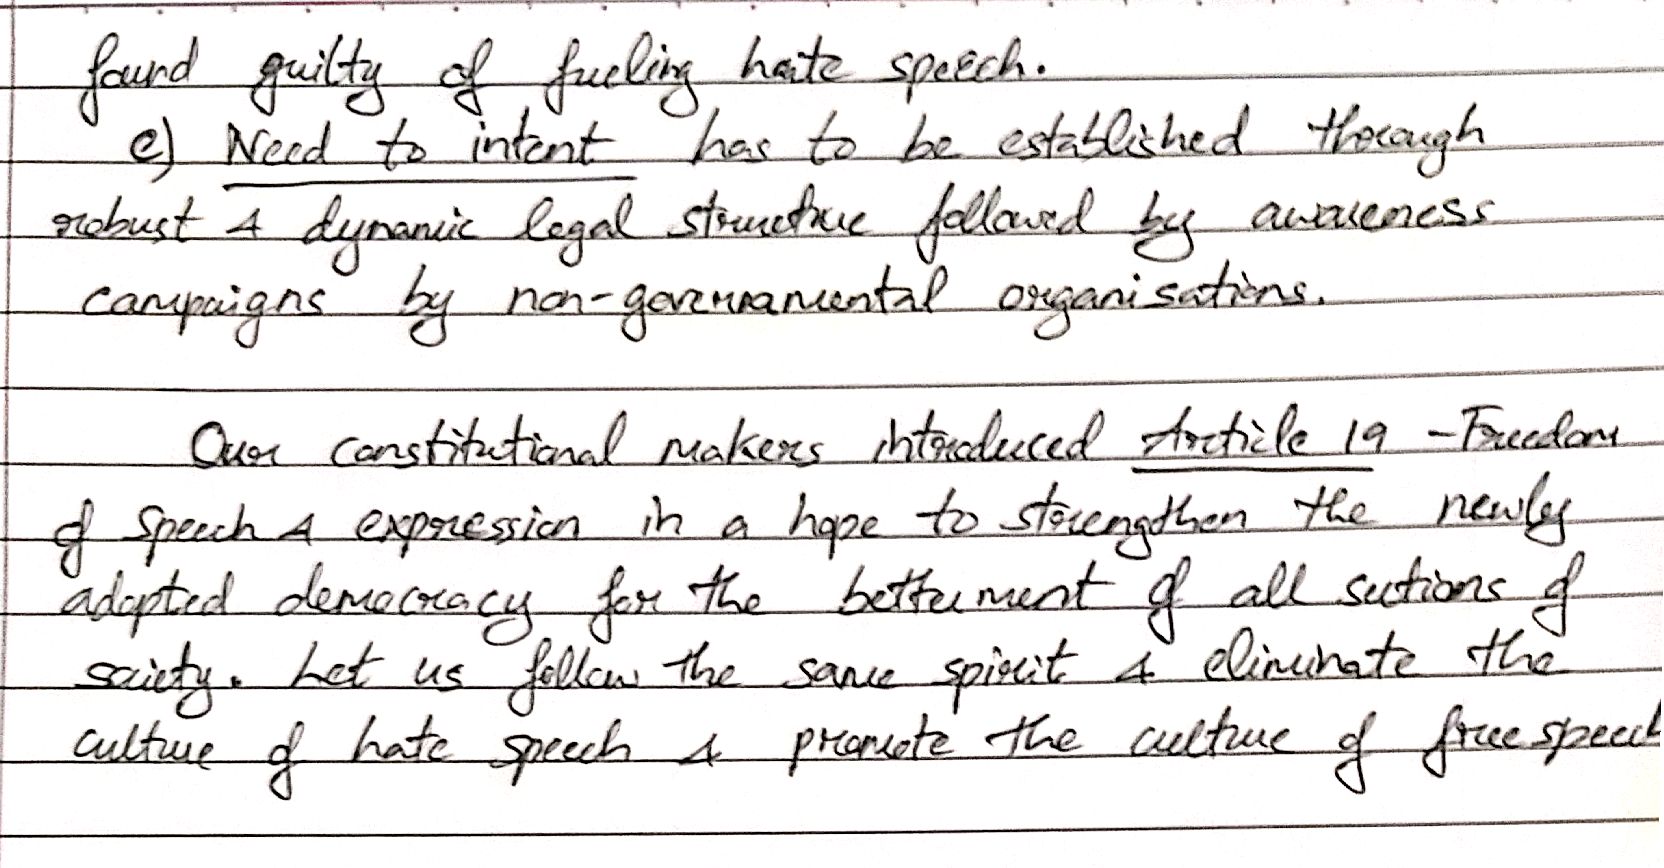 found guilty of fueling hate speech.
e) Need to intent has to be established through
robust & dynamic legal structure followed by awareness
campaigns by non-governamental organisations.
Our constitutional makers introduced Article 19 - Freedom
of speech & expression in a hope to strengthen the newly
adopted democracy for the betterment of all sections of
society. Let us follow the same spirit & eliminate the
culture of hate speech & promote the culture of free speech